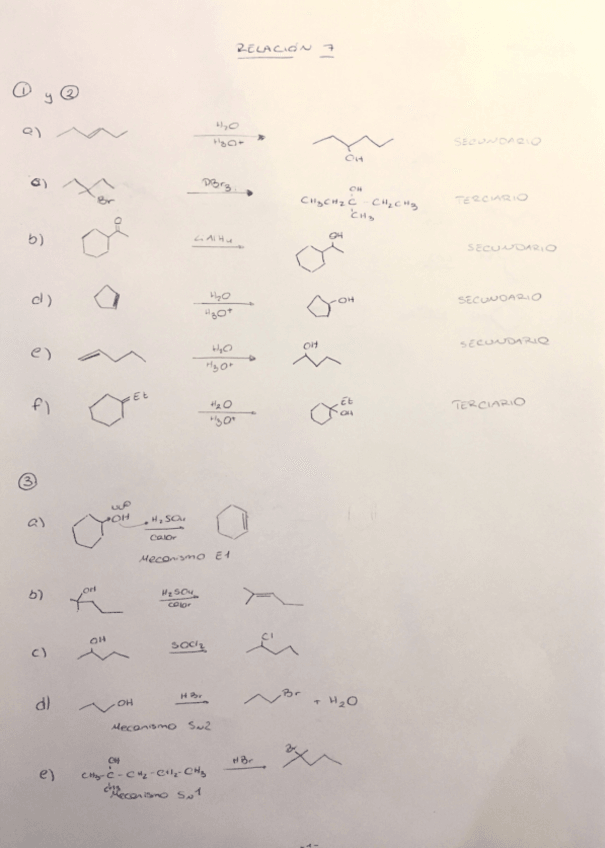 RELACIÓN 7
① y ②
a) H₂O H₃O+ OH SECUNDARIO
Br PBr₃ CH₃CH₂C-CH₂CH₃ OH CH₃ TERCIARIO
b) O LiAlH₄ OH SECUNDARIO
d) H₂O H₃O+ OH SECUNDARIO
e) H₂O H₃O+ OH SECUNDARIO
f) Et H₂O H₃O+ Et OH TERCIARIO
③
a) OH H₂SO₄ calor
Mecanismo E1
b) OH H₂SO₄ calor
c) OH SOCl₂ Cl
d) OH HBr Br + H₂O
Mecanismo SN2
e) OH CH₃-C-CH₂-CH₂-CH₃ CH₃ HBr Br
Mecanismo SN1